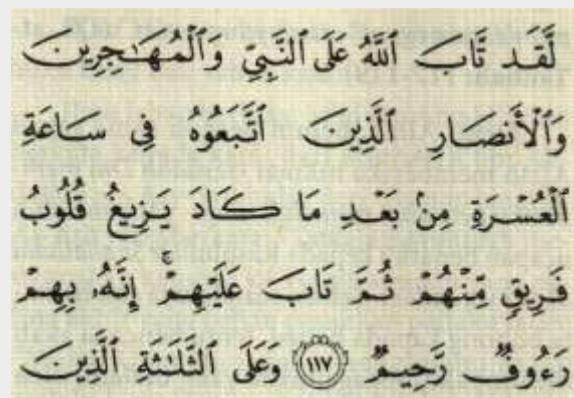 لَّقَد تَّابَ ٱللَّهُ عَلَى ٱلنَّبِيِّ وَٱلْمُهَـٰجِرِينَ
وَٱلْأَنصَارِ ٱلَّذِينَ ٱتَّبَعُوهُ فِى سَاعَةِ
ٱلْعُسْرَةِ مِنۢ بَعْدِ مَا كَادَ يَزِيغُ قُلُوبُ
فَرِيقٍ مِّنْهُمْ ثُمَّ تَابَ عَلَيْهِمْ ۚ إِنَّهُۥ بِهِمْ
رَءُوفٌ رَّحِيمٌ ١١٧ وَعَلَى ٱلثَّلَـٰثَةِ ٱلَّذِينَ